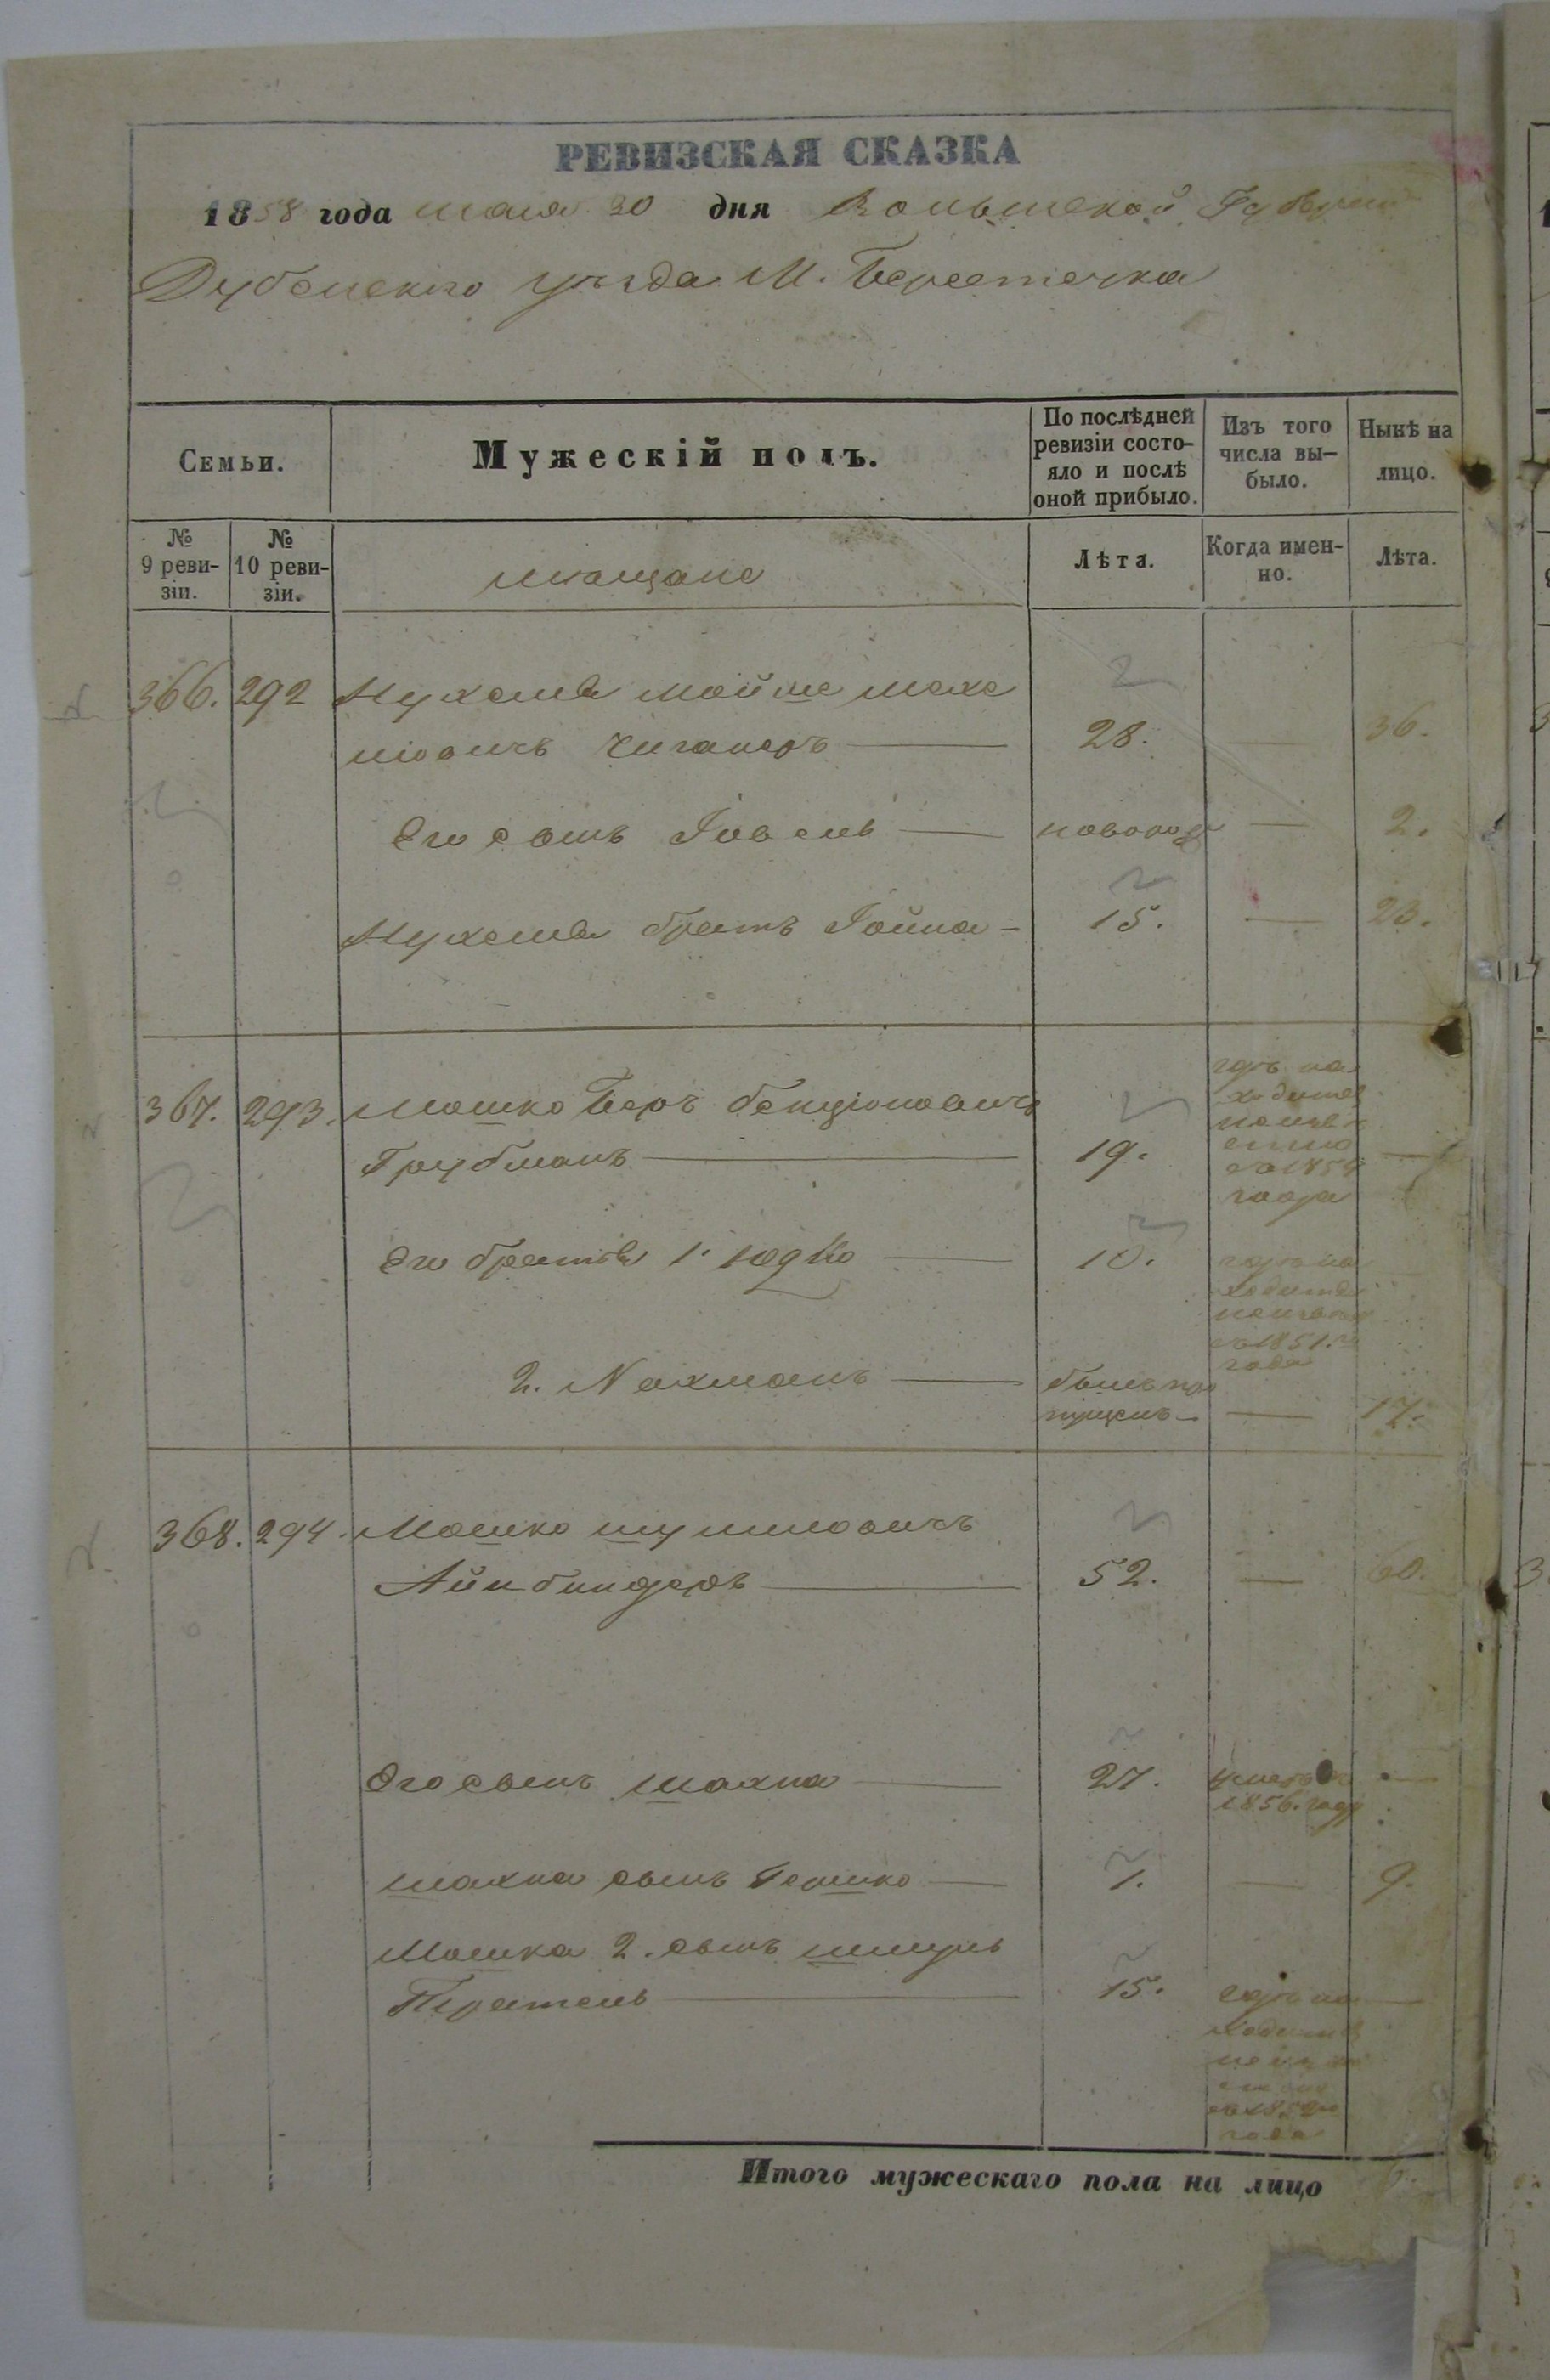 РЕВИЗСКАЯ СКАЗКА
1858 года мая 30 дня Волынской Губерніи
Дубенскаго уѣзда М. Берестечка
Семьи.
Мужескій полъ.
По послѣдней ревизіи состо-яло и послѣ оной прибыло.
Изъ того числа вы-было.
Нынѣ на лицо.
№ 9 реви-зіи.
№ 10 реви-зіи.
мещане
Лѣта.
Когда имен-но.
Лѣта.
366. 292 Нухемъ
28. — 36.
Его сынъ Іовель — новорож — 2.
Нухема братъ Іойна — 15. — 23.
367. 293. Мошко Беръ Бенціоновичъ
Грубманъ — 19. —
гдѣ на
ходится
неизвѣ
стно
съ 1854
года
Его братья 1. Юдко — 10.
гдѣ на
ходится
съ 1851.го
года
2. Нахманъ — былъ про
пущенъ — — 17.
368. 294. Мошко
Айнбиндеръ — 52. — 60.
Его сынъ Шахна — 27. умеръ въ —
1856. году
Шахна сынъ Гершко — 1. — 9.
Мошка 2. сынъ Шмуль
15. гдѣ на —
ходится
года
Итого мужескаго пола на лицо